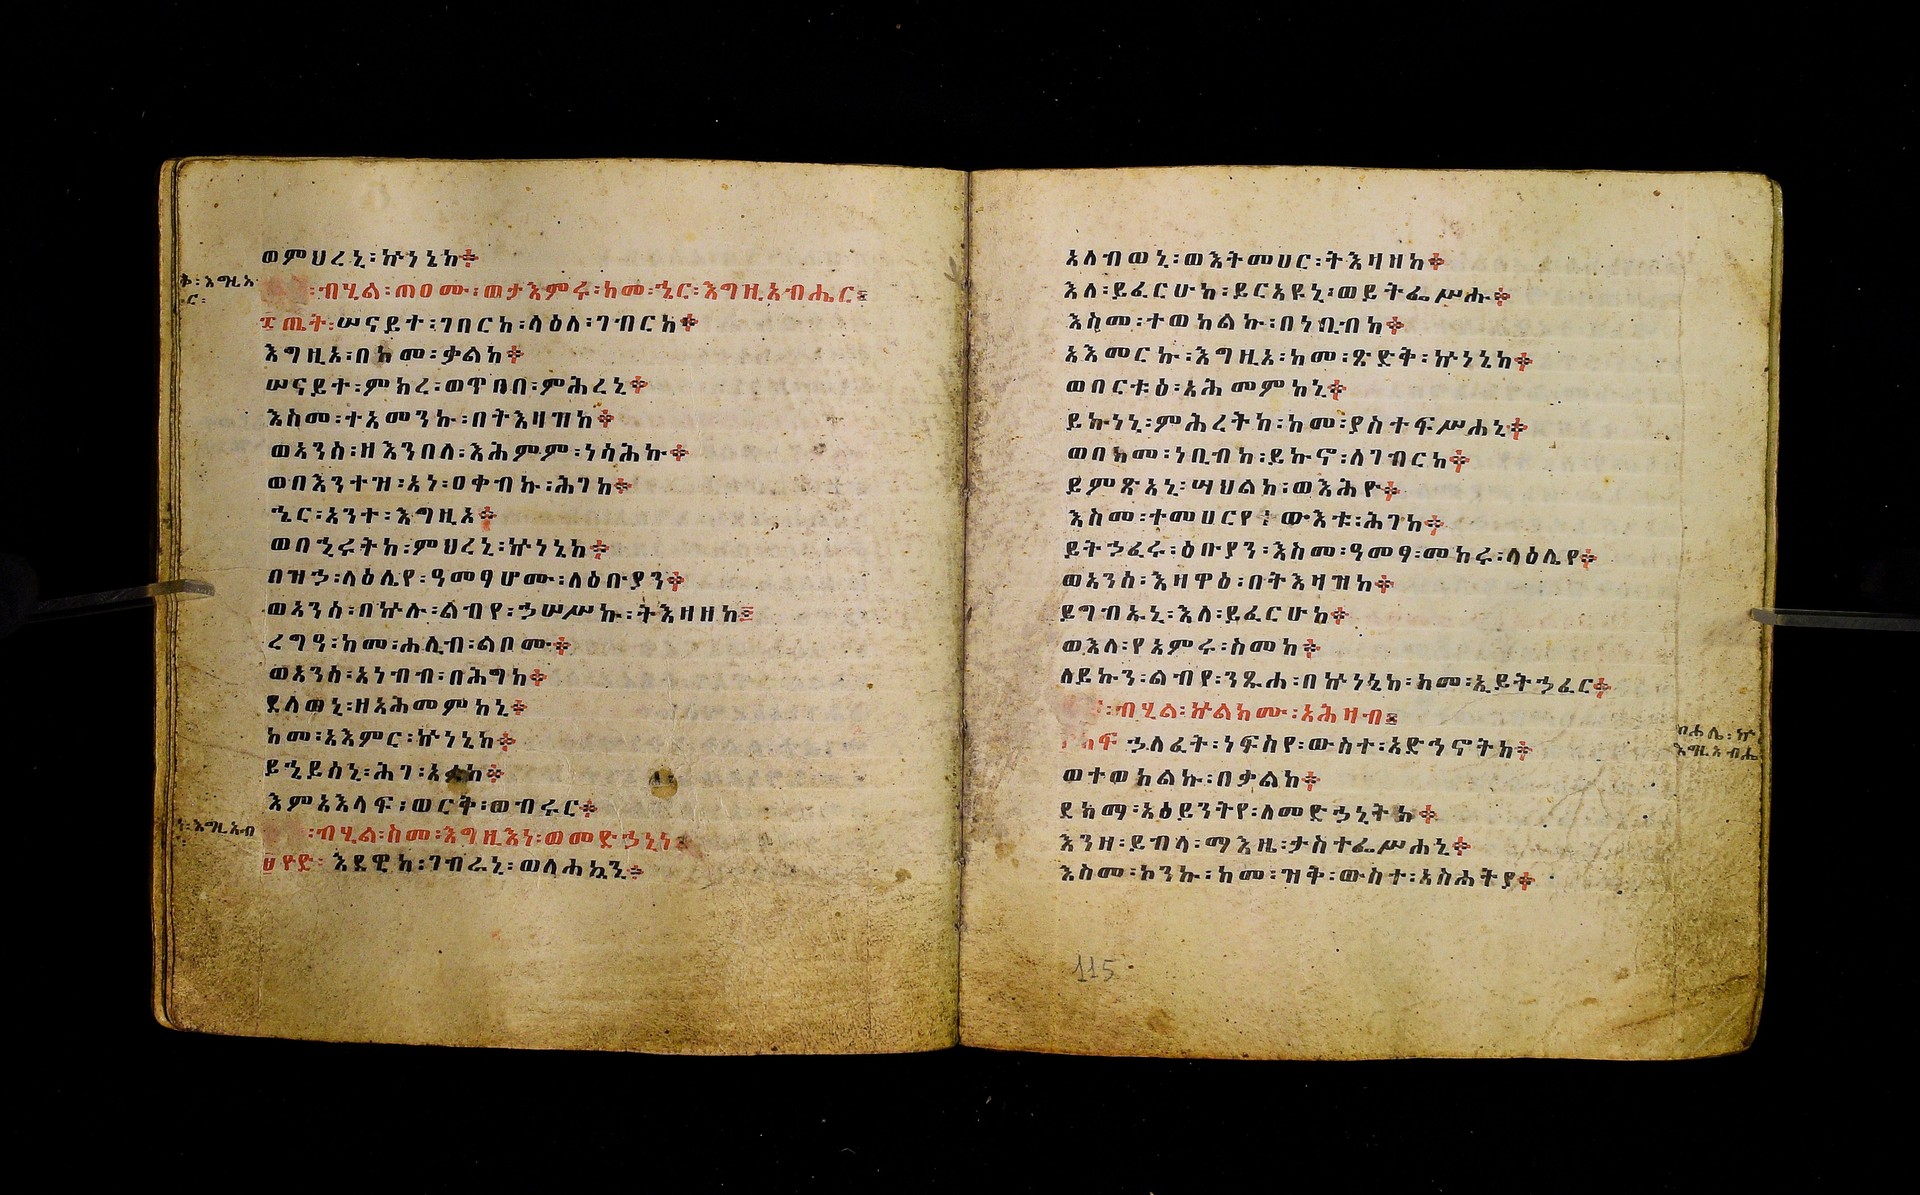 ወምህረኒ፡ኵነኔከ፨
ቅ፡እግዚአ
ር፡
፡ብሂል፡ጠዐሙ፡ወታእምሩ፡ከመ፡ኄር፡እግዚአብሔር፡
፱ጤት፡ሠናይተ፡ገበርከ፡ላዕለ፡ገብርከ፨
እግዚአ፡በከመ፡ቃልከ፨
ሠናይተ፡ምክረ፡ወጥበበ፡ምሕረኒ፨
እስመ፡ተአመንኩ፡በትእዛዝከ፨
ወአንሰ፡ዘእንበለ፡እሕምም፡ነሳሕኩ፨
ወበእንተዝ፡አነ፡ዐቀብኩ፡ሕገከ፨
ኄር፡አንተ፡እግዚአ፨
ወበኂሩትከ፡ምህረኒ፡ኵነኔከ፨
በዝኃ፡ላዕሌየ፡ዓመፃሆሙ፡ለዕቡያን፨
ወአንሰ፡በኵሉ፡ልብየ፡ኃሠሥኩ፡ትእዛዘከ፨
ረግዓ፡ከመ፡ሐሊብ፡ልቦሙ፨
ወአንሰ፡አነብብ፡በሕግከ፨
ደለወኒ፡ዘአሕመምከኒ፨
ከመ፡አእምር፡ኵነኔከ፨
ይኄይሰኒ፡ሕገ፡አፉከ፨
እምአእላፍ፡ወርቅ፡ወብሩር፨
ነ፡እግዚአብ
፡ብሂል፡ስመ፡እግዚእነ፡ወመድኃኒነ፡
፲ዮድ፡እደዊከ፡ገብራኒ፡ወለሐኳኒ፨
አለብወኒ፡ወእትመሀር፡ትእዛዘከ፨
እለ፡ይፈርሁከ፡ይርአዩኒ፡ወይትፌሥሑ፨
እስመ፡ተወከልኩ፡በነቢብከ፨
አእመርኩ፡እግዚአ፡ከመ፡ጽድቅ፡ኵነኔከ፨
ወበርቱዕ፡አሕመምከኒ፨
ይኩነኒ፡ምሕረትከ፡ከመ፡ያስተፍሥሐኒ፨
ወበከመ፡ነቢብከ፡ይኩኖ፡ለገብርከ፨
ይምጽአኒ፡ሣህልከ፡ወእሕዮ፨
እስመ፡ተመሀርየ፡ውእቱ፡ሕገከ፨
ይትኃፈሩ፡ዕቡያን፡እስመ፡ዓመፃ፡መከሩ፡ላዕሌየ፨
ወአንሰ፡እዛዋዕ፡በትእዛዝከ፨
ይግብኡኒ፡እለ፡ይፈርሁከ፨
ወእለ፡የአምሩ፡ስመከ፨
ለይኩን፡ልብየ፡ንጹሐ፡በኵነኔከ፡ከመ፡ኢይትኃፈር፨
፡ብሂል፡ኵልክሙ፡አሕዛብ፡
ካፍ ኃለፈት፡ነፍስየ፡ውስተ፡አድኅኖትከ፨
ወተወከልኩ፡በቃልከ፨
ደክማ፡አዕይንትየ፡ለመድኃኒትከ፨
እንዘ፡ይብላ፡ማእዜ፡ታስተፌሥሐኒ፨
እስመ፡ኮንኩ፡ከመ፡ዝቅ፡ውስተ፡አስሐትያ፨
ብሐሌ፡ኵ
እግዚአብሔ
115